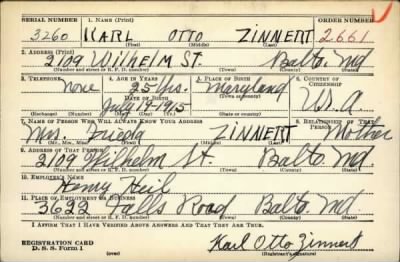 SERIAL NUMBER 1. NAME (Print) ORDER NUMBER
3260 KARL OTTO ZINNERT 2661
(First) (Middle) (Last)
2. ADDRESS (Print)
2109 Wilhelm St. Balto. Md
(Number and street or R. F. D. number) (Town) (County) (State)
3. TELEPHONE 4. AGE IN YEARS 5. PLACE OF BIRTH 6. COUNTRY OF CITIZENSHIP
None 25 Yrs. Maryland
DATE OF BIRTH (Town or county)
July 1915 U.S.A
(Exchange) (No.) (Mo.) (Day) (Yr.) (State or country)
7. NAME OF PERSON WHO WILL ALWAYS KNOW YOUR ADDRESS 8. RELATIONSHIP OF THAT PERSON
Mrs. Frieda ZINNERT Mother
(Mr., Mrs., Miss) (First) (Middle) (Last)
9. ADDRESS OF THAT PERSON
2109 Wilhelm St. Balto. Md.
(Number and street or R. F. D. number) (Town) (County) (State)
10. EMPLOYER'S NAME
Henry Heil
11. PLACE OF EMPLOYMENT OR BUSINESS
3622 Falls Road Balto. Md
(Number and street or R. F. D. number) (Town) (County) (State)
I AFFIRM THAT I HAVE VERIFIED ABOVE ANSWERS AND THAT THEY ARE TRUE.
REGISTRATION CARD
D. S. S. Form 1 Karl Otto Zinnert
(Registrant's signature)